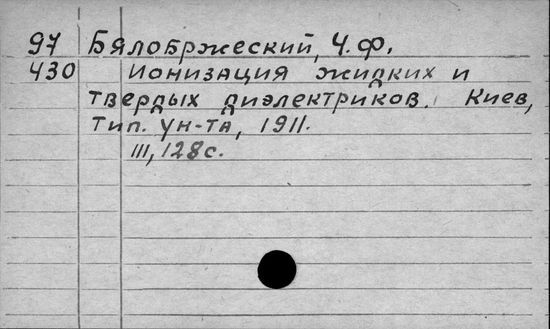 97 Бялобржеский, Ч.Ф.
430 Ионизация жидких и
твердых диэлектриков. Киев,
тип. ун-та, 1911.
III, 128 с.